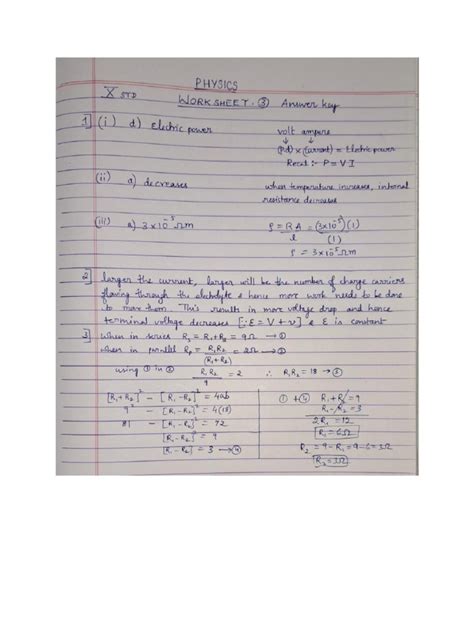 PHYSICS
X STD
WORKSHEET - ③ Answer key
1] (i) d) Electric power volt ampere
↓ ↓
(Pd) x (Current) = Electric power
Recal :- P = V I
(ii) a) decreases when temperature increases, internal
resistance decreases
(iii) a) 3x10⁻⁵ Ωm ρ = RA/l = (3x10⁻⁵)(1)/(1)
ρ = 3x10⁻⁵ Ωm
2] larger the current, larger will be the number of charge carriers
flowing through the electrolyte & hence more work needs to be done
to move them. This result in more voltage drop and hence
terminal voltage decreases [∵ E = V + v] & E is constant
3] when in series Rs = R₁+R₂ = 9Ω → ①
when in parallel Rp = R₁R₂/(R₁+R₂) = 2Ω → ②
using ① in ② R₁R₂/9 = 2 ∴ R₁R₂ = 18 → ③
[R₁+R₂]² - [R₁-R₂]² = 4ab
9² - [R₁-R₂]² = 4(18)
81 - [R₁-R₂]² = 72
[R₁-R₂]² = 9
[R₁-R₂] = 3 → ④
① + ④ R₁+R₂ = 9
R₁-R₂ = 3
2R₁ = 12
R₁ = 6Ω
R₂ = 9 - R₁ = 9-6 = 3Ω
R₂ = 3Ω